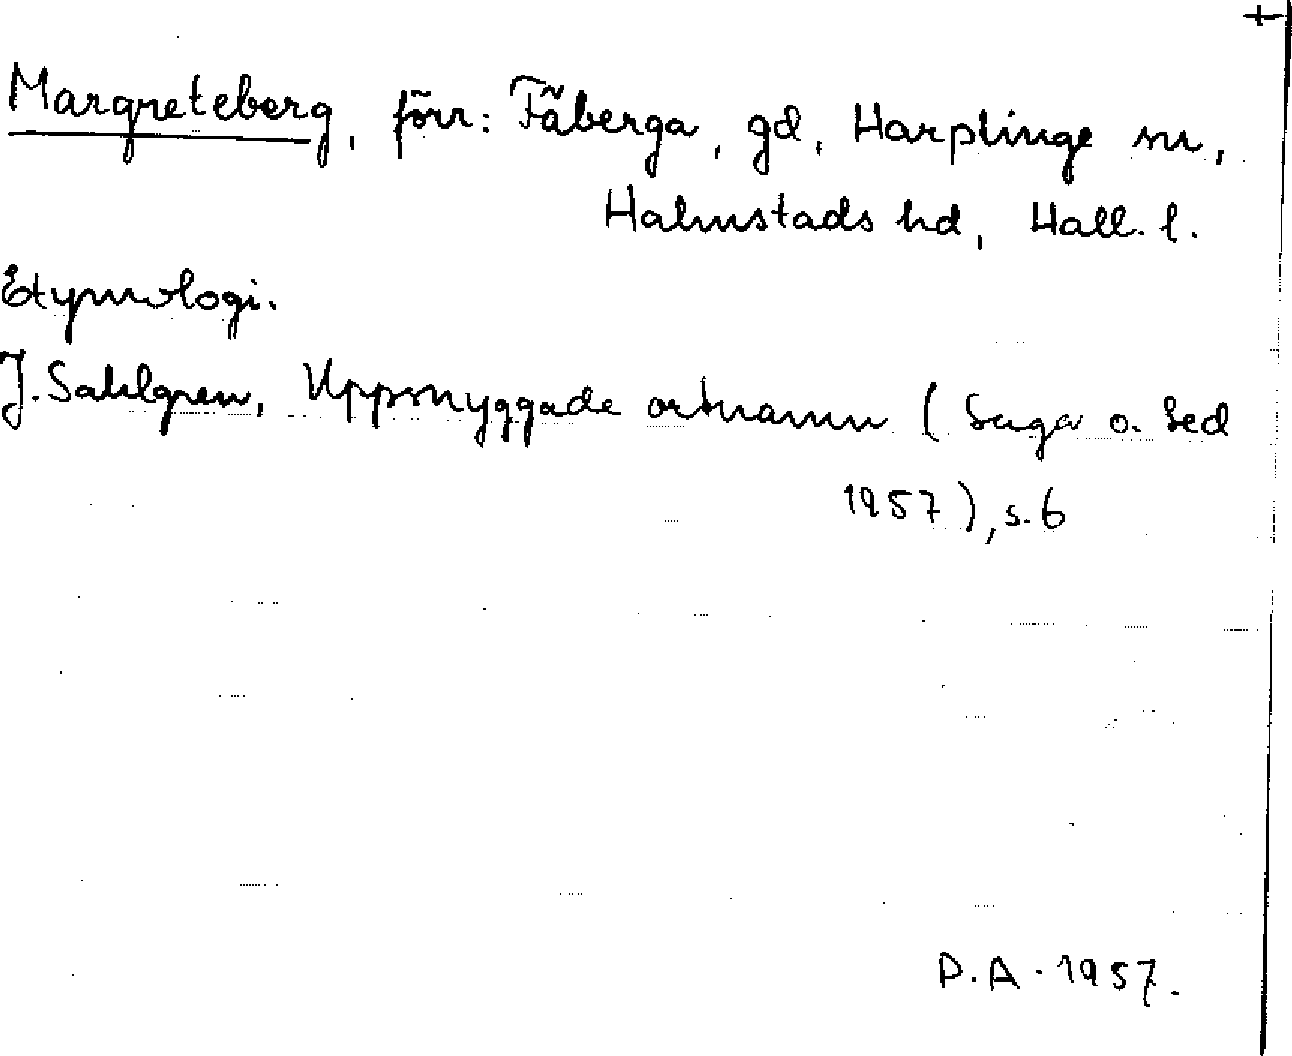 +
Margreteberg, förr: Fäberga, gd, Harplinge sn,
Halmstads hd, Hall. l.
Etymologi.
J. Sahlgren, Uppsnyggade ortnamn (Saga o. Sed
1957), s. 6
D.A. 1957.